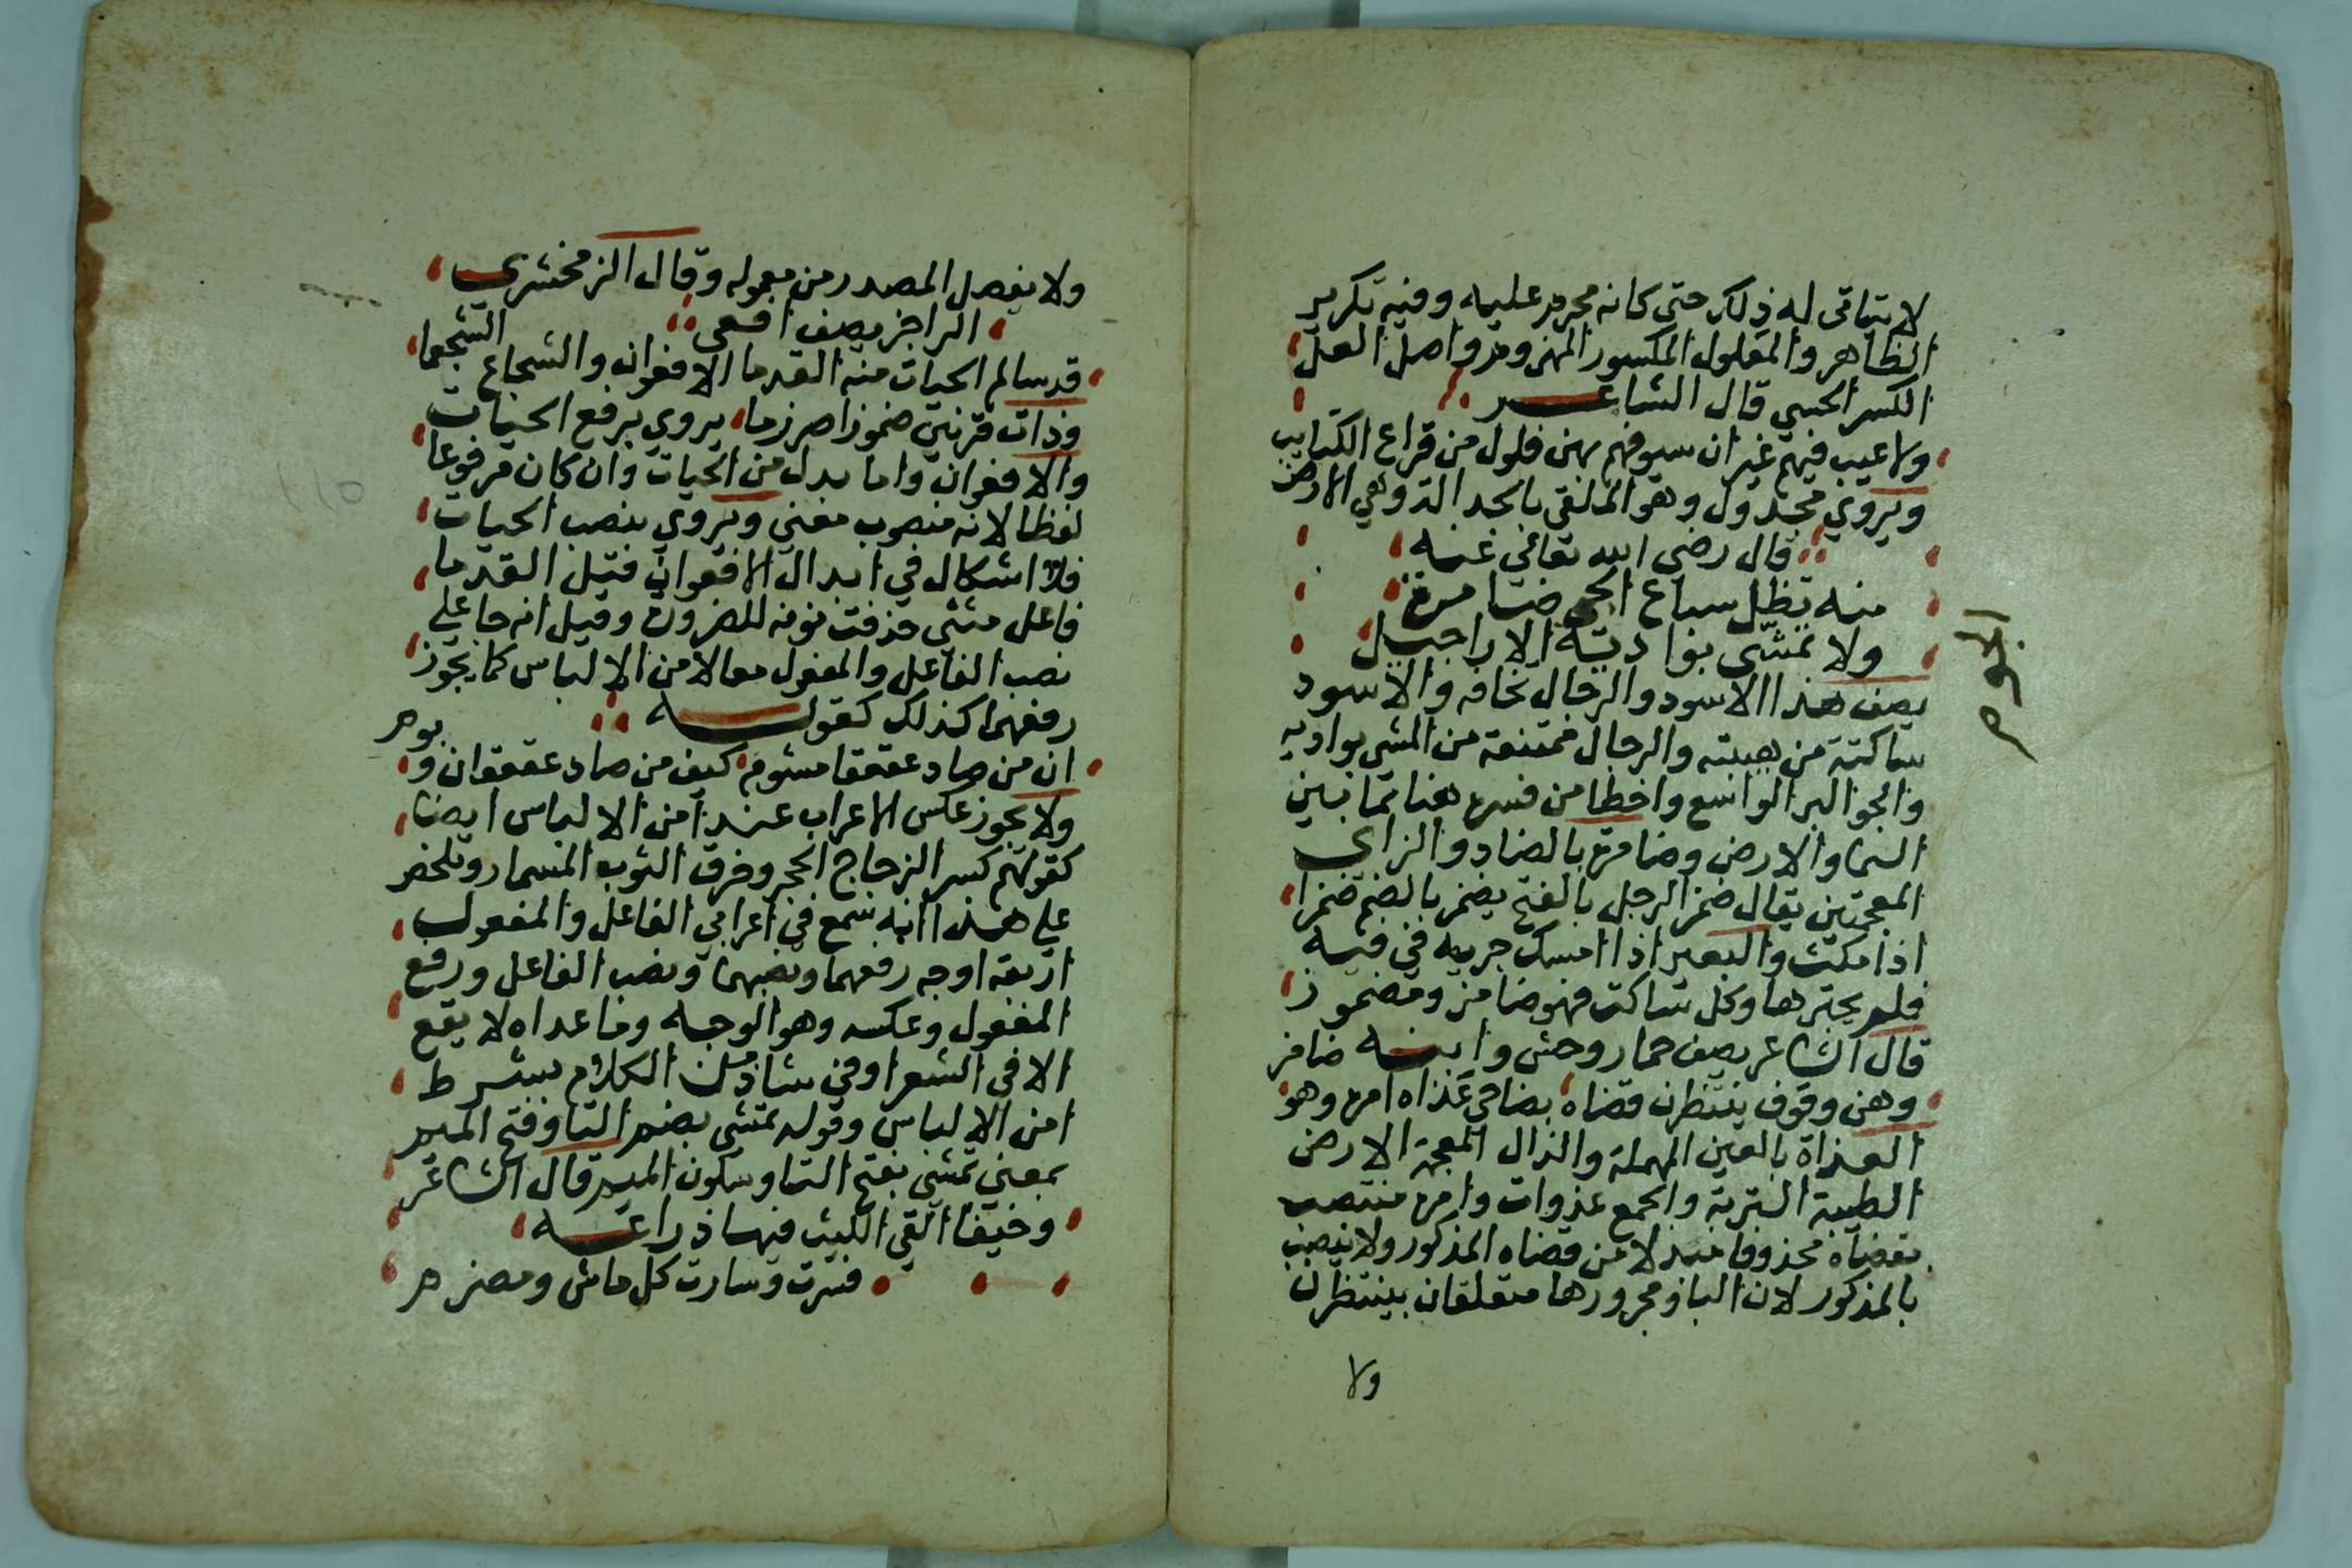 لا يتأتى له ذلك حتى كانه محرم عليه وفيه تكرير
الظاهر والمفلول المكسور المهزوم واصل الفل
الكسر الحسي قال الشاعر
ولا عيب فيهم غير ان سيوفهم بهن فلول من قراع الكتايب
ويروي مجدول وهو الملقى بالجدالة وهي الارض
قال رضي الله تعالى عنه
منه تظل سباع الجو ضامزة
ولا تمشى بواديه الاراجيل
الجوم
يصف هذا الاسود والرجال تخافه والاسود
ساكتة من هيبته والرجال ممتنعة من المشي بواديه
والجو البر الواسع واخطا من فسره هنا بما بين
السما والارض وضامزة بالضاد والزاي
المعجمتين يقال ضمز الرجل بالفتح يضمز بالضم ضمزا
اذا سكت والبعير اذا امسك جريه في فيه
فلم يجترها وكل ساكت فهو ضامز وضموز
قال الشاعر يصف حمار وحش واتنه ضامز
وهن وقوف ينتظرن قضاه بضاحي عذاه امره وهو
العذاة بالعين المهملة والذال المعجمة الارض
الطيبة التربة والجمع عذوات وامره منتصب
بقضاه محذوفا مبدلا من قضاه المذكور ولا ينصب
بالمذكور لان البا ومجرورها متعلقان بينتظرن
ولا
ولا يفصل المصدر من معموله وقال الزمخشري
الراجز يصف افعى
قد سالم الحيات منه القدما الافعوان والشجاع الشجعما
وذات قرنين ضموزا ضرزما يروي برفع الحيات
والافعوان واما بدل من الحيات وان كان مرفوعا
لفظا لانه منصوب معني ويروي بنصب الحيات
فلا اشكال في ابدال الافعوان فقيل القدما
فاعل مثنى حذفت نونه للضرورة وقيل انه جا علي
نصب الفاعل والمفعول معا لامن الالباس كما يجوز
رفعهما كذلك كقوله
ان من صاد عقعقا مشوم كيف من صاد عقعقان وبوم
ولا يجوز عكس الاعراب عند امن الالباس ايضا
كقولهم كسر الزجاج الحجر وخرق الثوب المسمار وتلخص
علي هذا انه سمع في اعرابي الفاعل والمفعول
اربعة اوجه رفعهما ونصبهما ونصب الفاعل ورفع
المفعول وعكسه وهو الوجه وما عداه لا يقع
الا في الشعر او في شاذ من الكلام بشرط
امن الالباس وقوله تمشى بضم التا وفتح الميم
بمعني تمشي بفتح التا وسكون الميم قال الشاعر
وخيفا القي الليث فيها ذراعه
فسرت وسارت كل ماش ومصرم